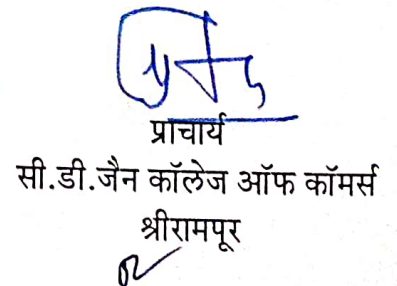 प्राचार्य
सी.डी.जैन कॉलेज ऑफ कॉमर्स
श्रीरामपूर